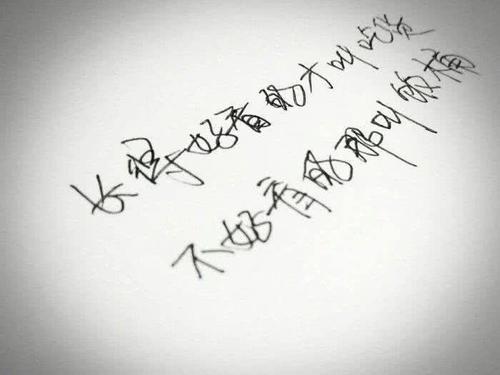 长得好看的才叫吃货
不好看的那叫饭桶